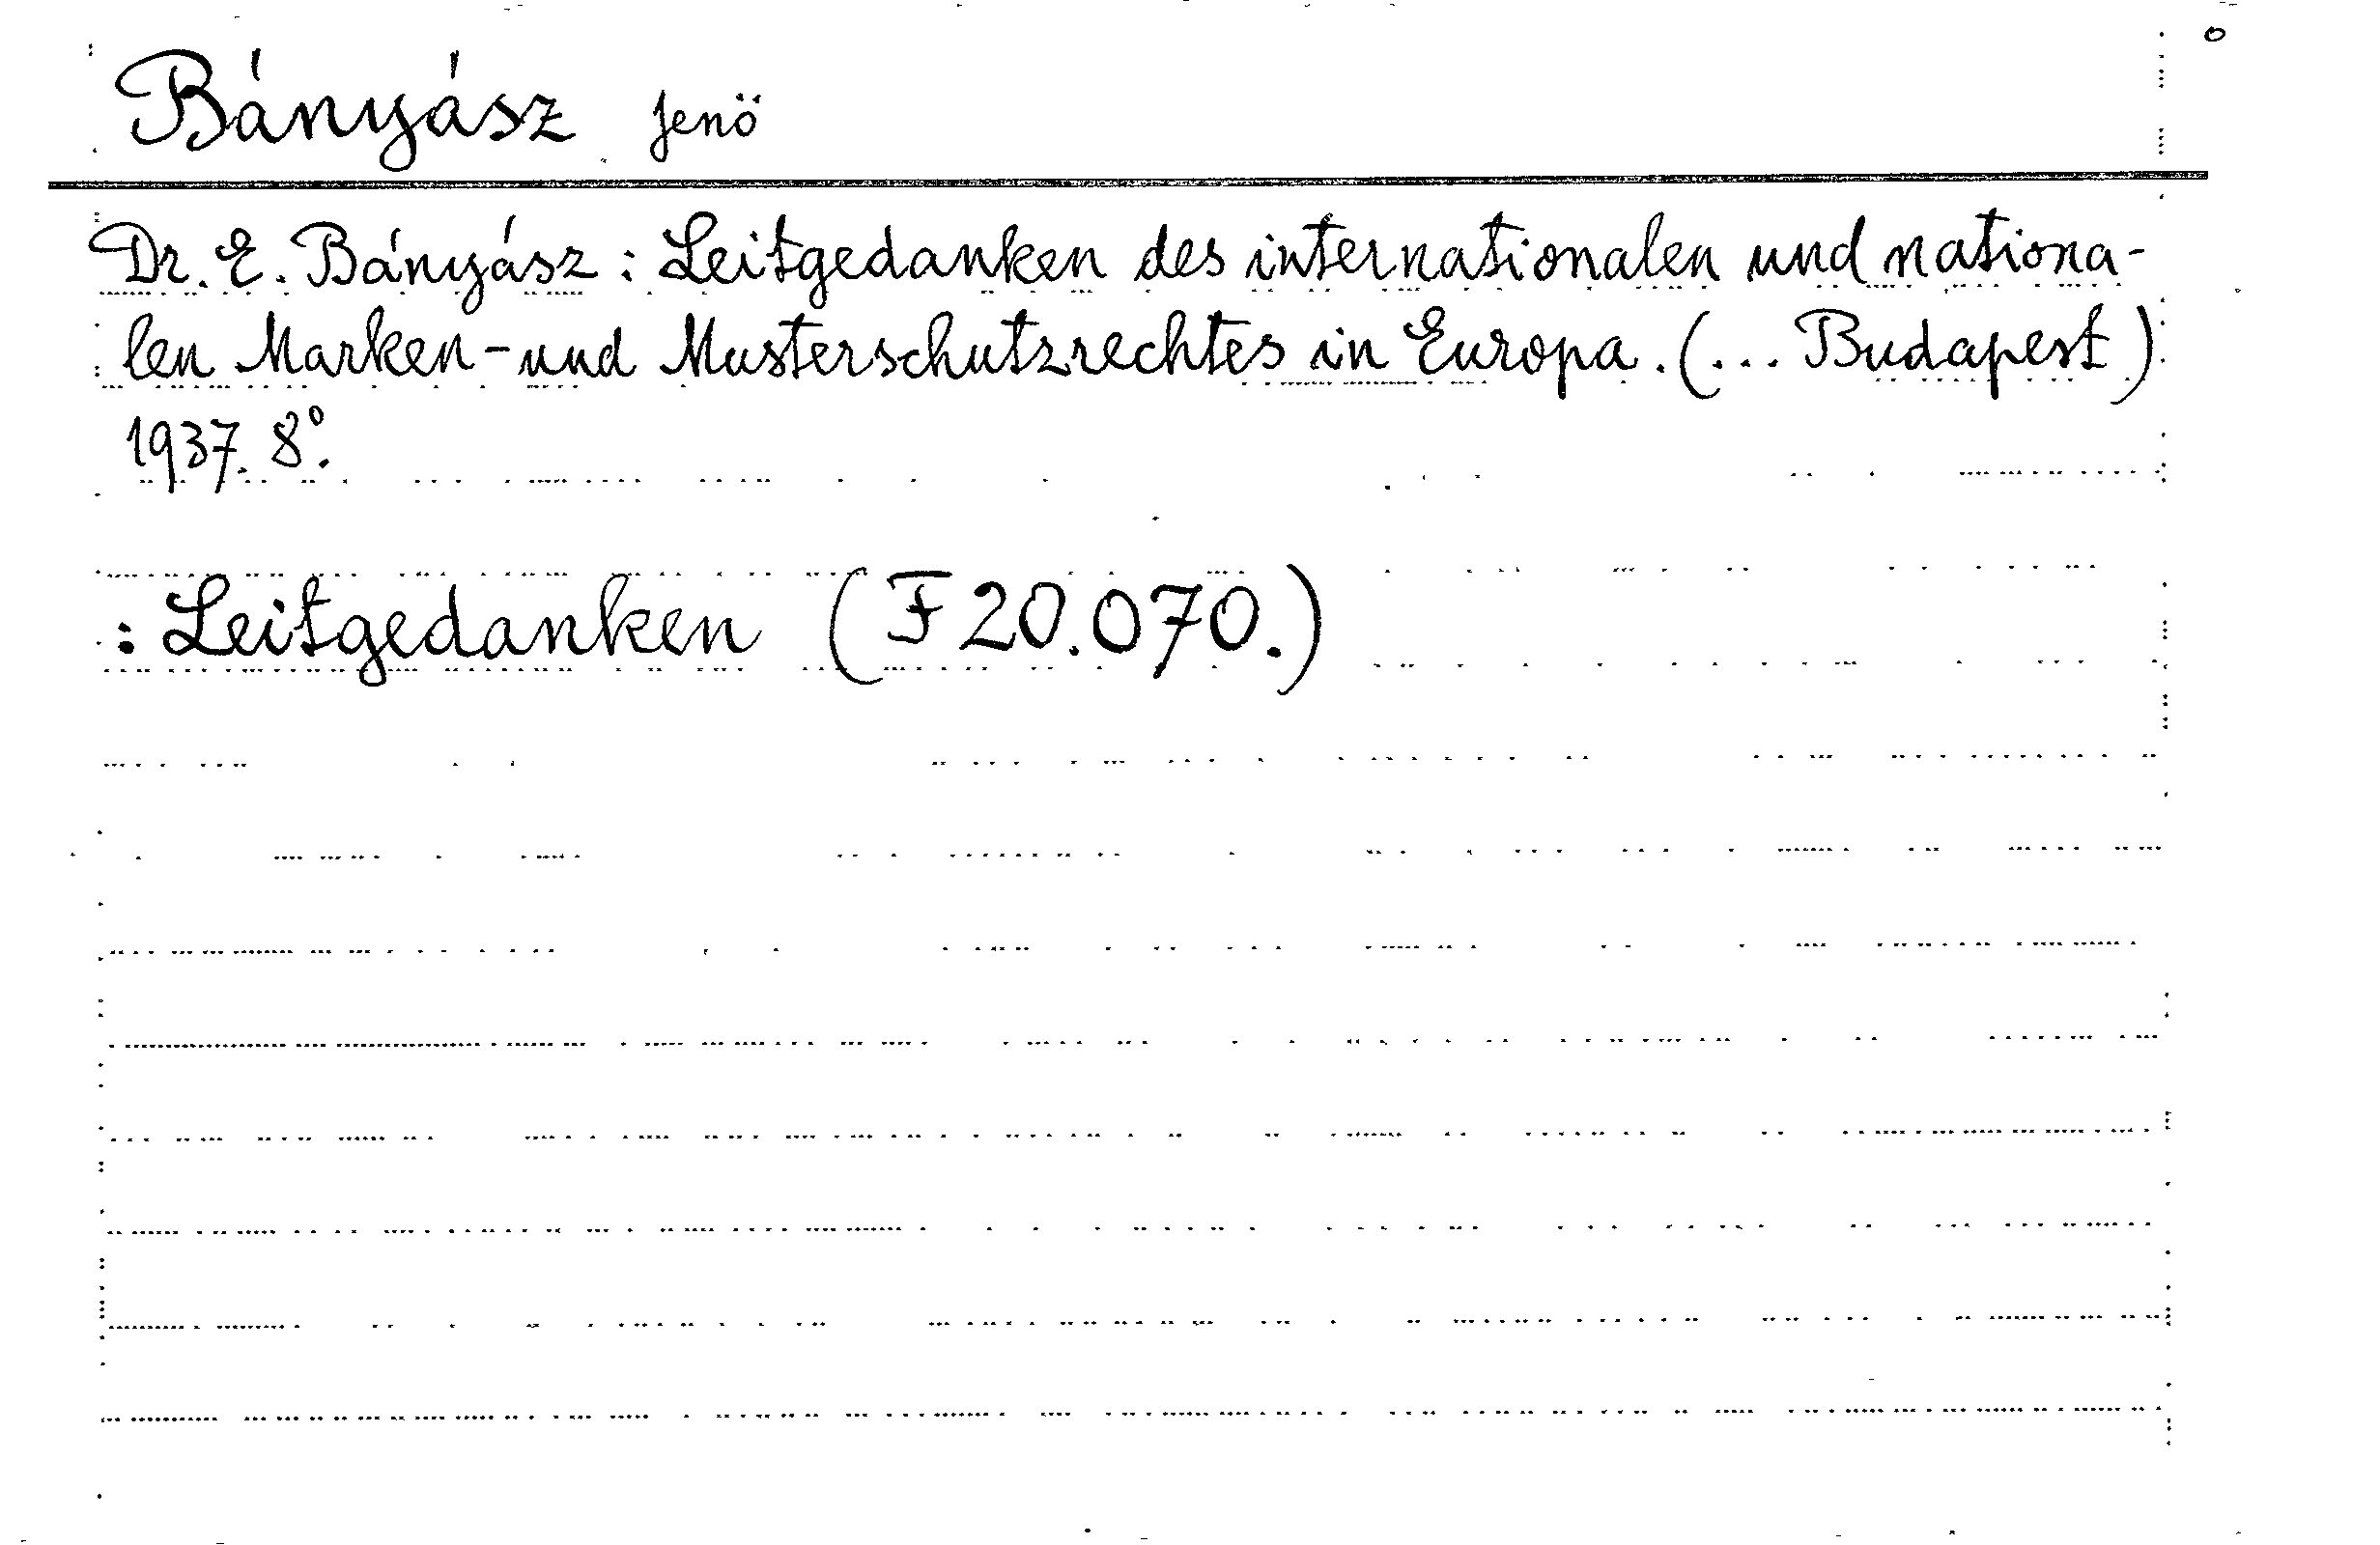 Bányász Jenö
Dr. E. Bányász: Leitgedanken des internationalen und nationa-
len Marken- und Musterschutzrechtes in Europa. (... Budapest)
1937. 8°.
: Leitgedanken (F 20.070.)